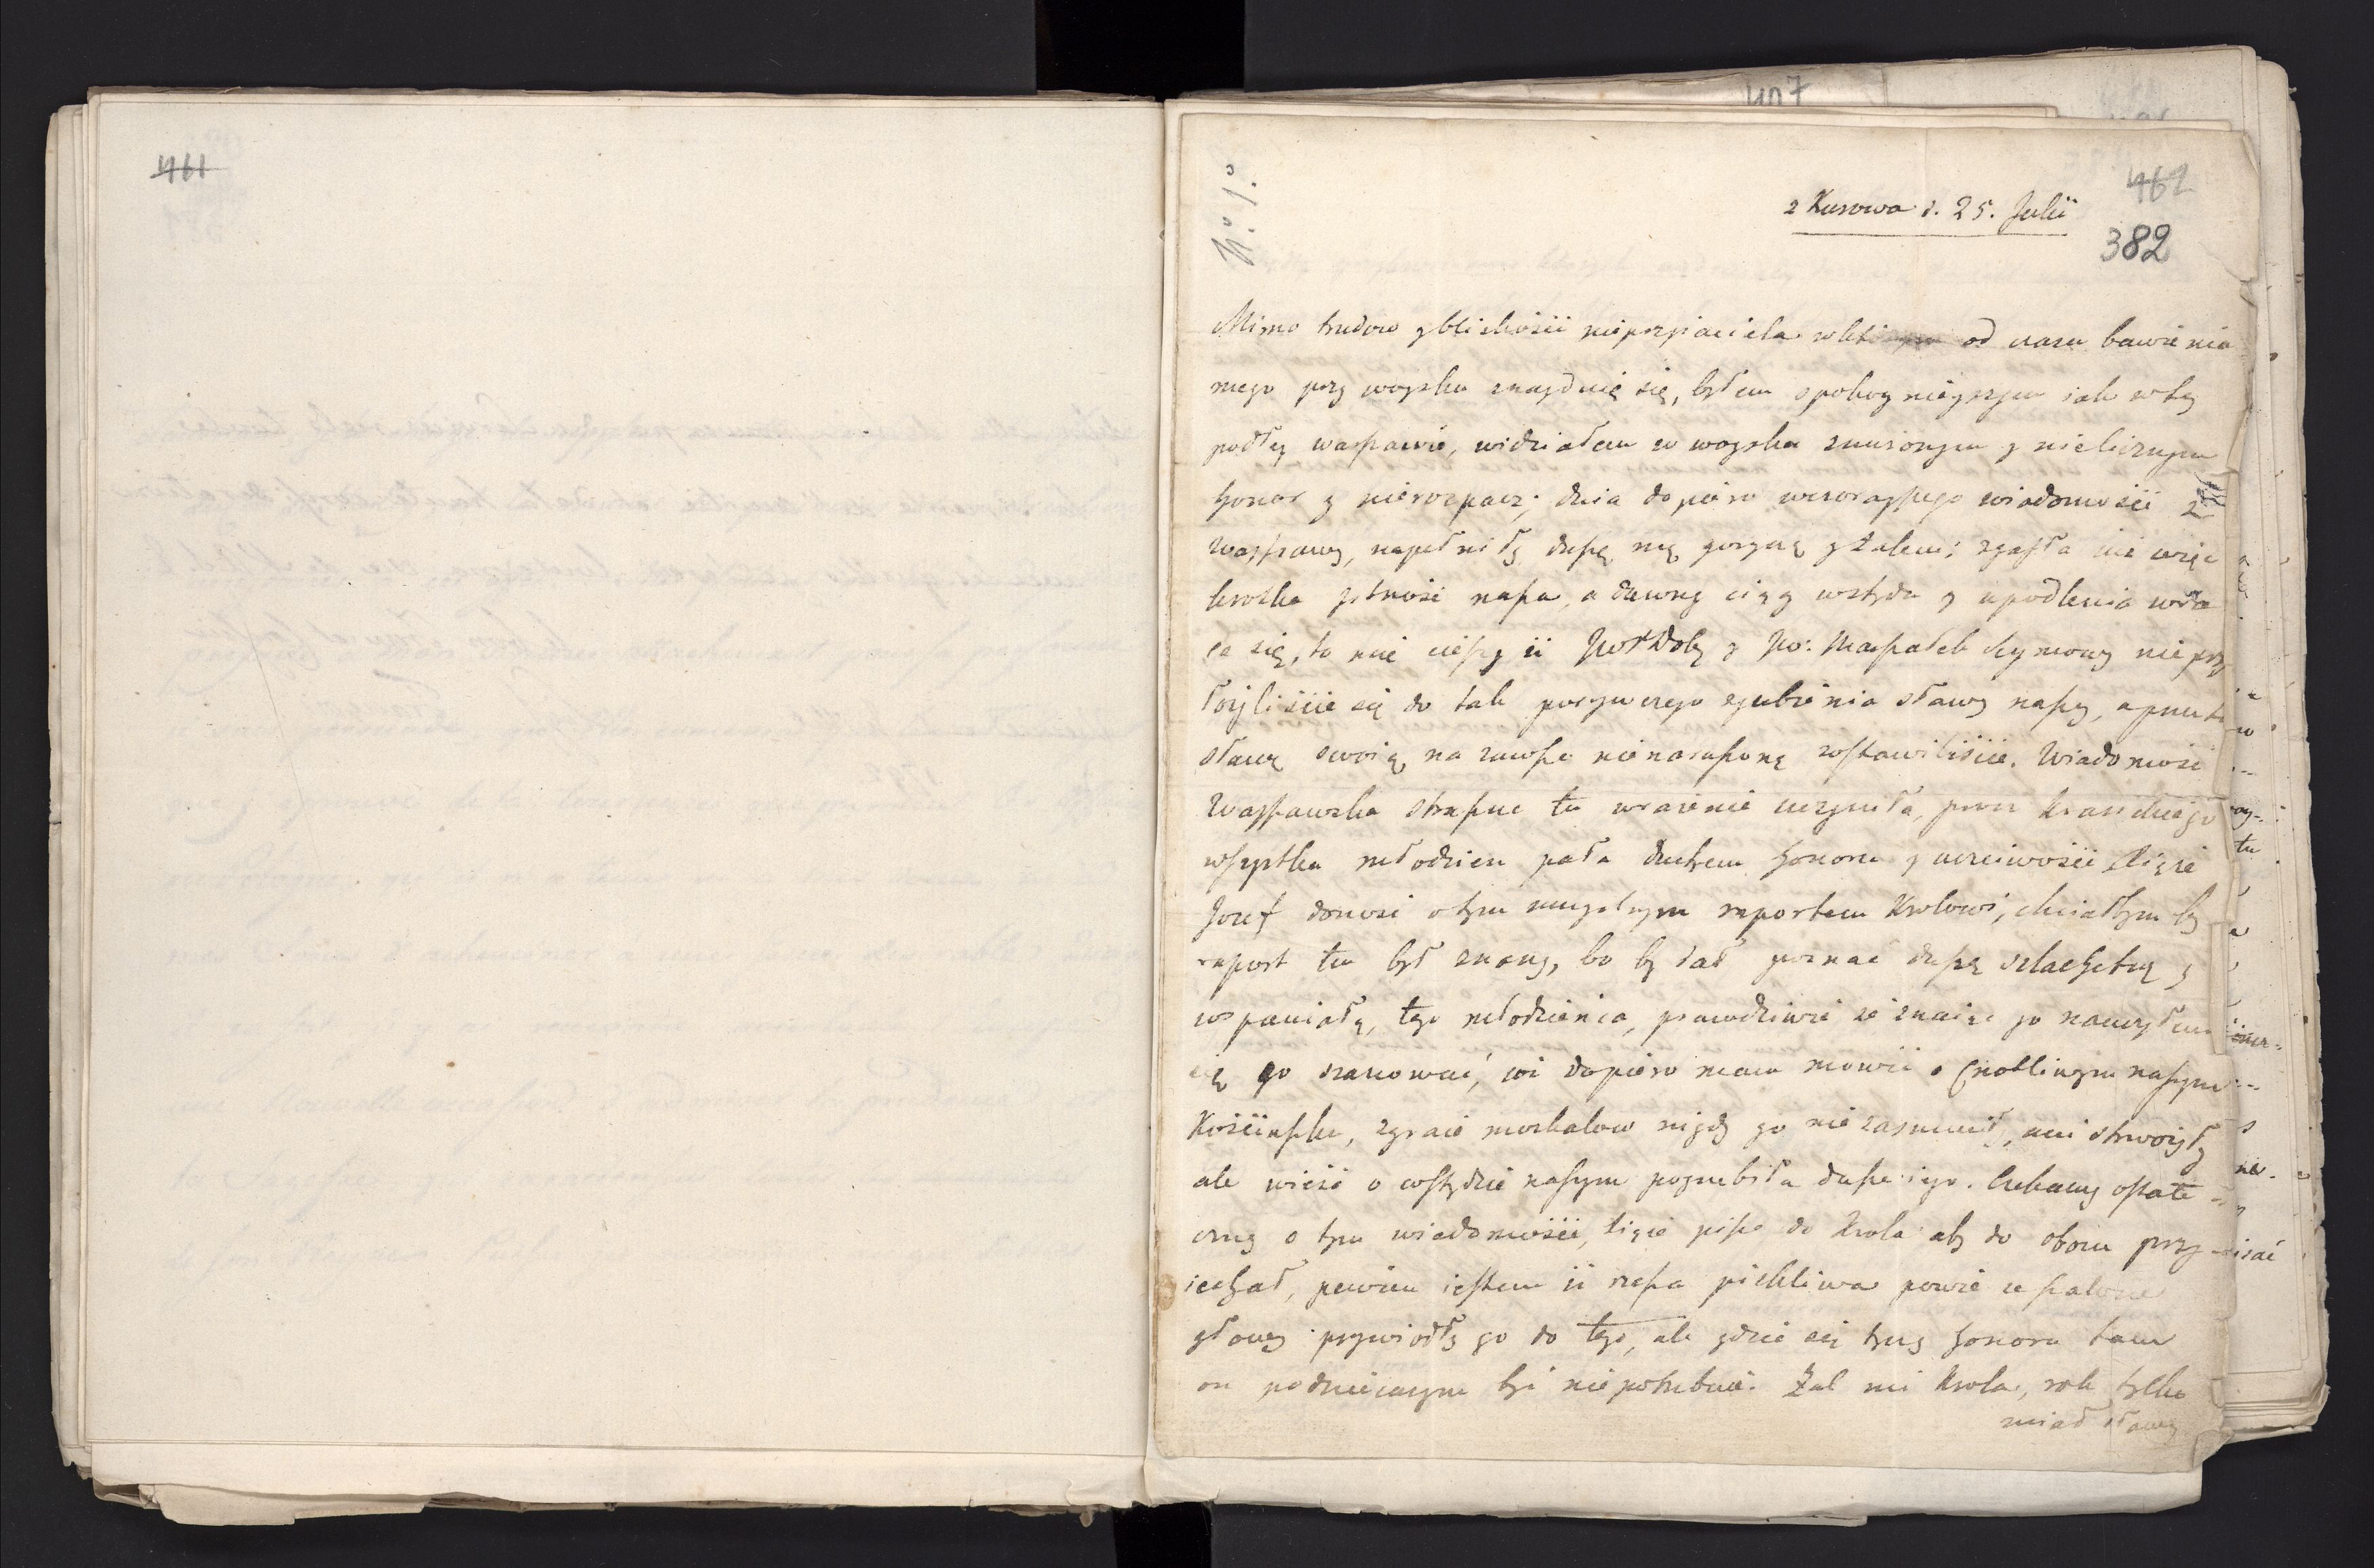 461
407
N.º 1.º
462
z Kurowa d. 25. Julii
382
Mimo trudow y bliskosci nieprzyiaciela w od czasu bawienia
mego przy woysku znayduię się, byłem spokoynieyszym iak w tey
podłey warszawie, widziałem w woysku znuzonym y nielicznym
honor y nierozpacz; dnia dopiero wczorayszego wiadomosci z
Warszawy, napełniły duszę mą goryczą y żalem; zgasła nie więc
krotka istnosc nasza, a dawny ciąg wstydu y upodlenia wra
ca się, to mnie cieszy ii JW Woły y JW: Marszałek Seymowy nie przy
łozyliscie się do tak poczywczego zgubienia sławy naszey, a przeto
sławę swoię na zawsze nienaruszoną zostawiliscie. Wiadomosc
Warszawska straszne tu wrazenie uczyniła, procz Kranickiego
wszystka młodziez pała duchem honoru y uczciwosci Xiąże
Jozef donosi o tym umyslnym raportem Krolowi, chciałbym by
raport ten był znany, bo by dał poznać duszę szlachetną y
wspaniałą, tego młodzienca, prawdziwie ze znaiąc go nauczyłem
się go szanować, coz dopiero mam mowic o Cnotliwym naszym
Kosciuszku, zgraie moskalow nigdy go nie zasmuciły, ani strwozyły
ale wiesc o wstydzie naszym pognebiła dusze iego. Czekamy ostate
czney o tym wiadomosci, Xiąże pisze do Krola aby do obozu przy
iechał, pewien iestem ii rzesza piekliwa powie ze szalone
głowy przywiodły go do tego, ale gdzie się tyczy honoru tam
on podniecanym byc nie potrzebuie. Żal mi Krola, rok tylko
miał sławy